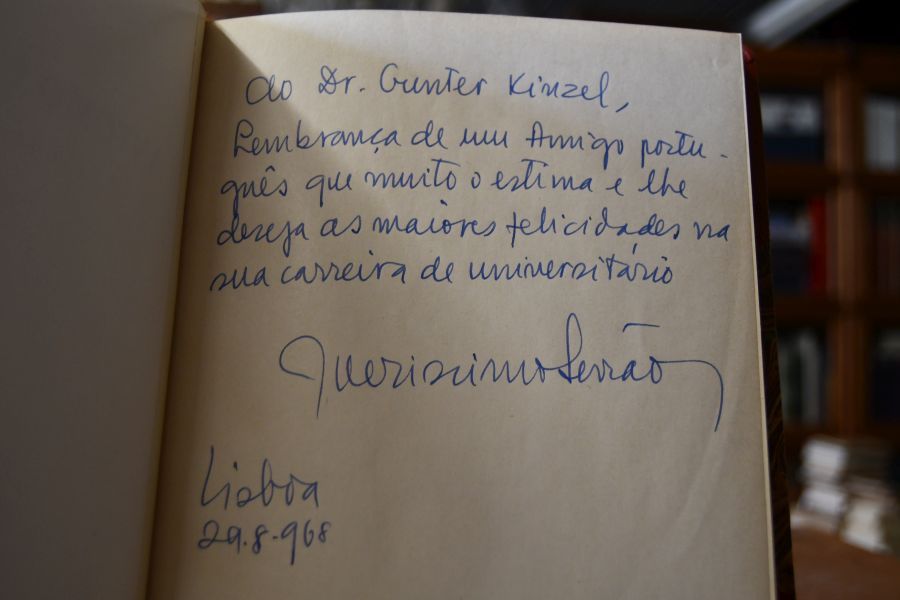 Ao Dr. Gunter Kinzel,
Lembrança de um Amigo portu-
guês que muito o estima e lhe
deseja as maiores felicidades na
sua carreira de universitário
Verissimo Serrão
Lisboa
29.8.968